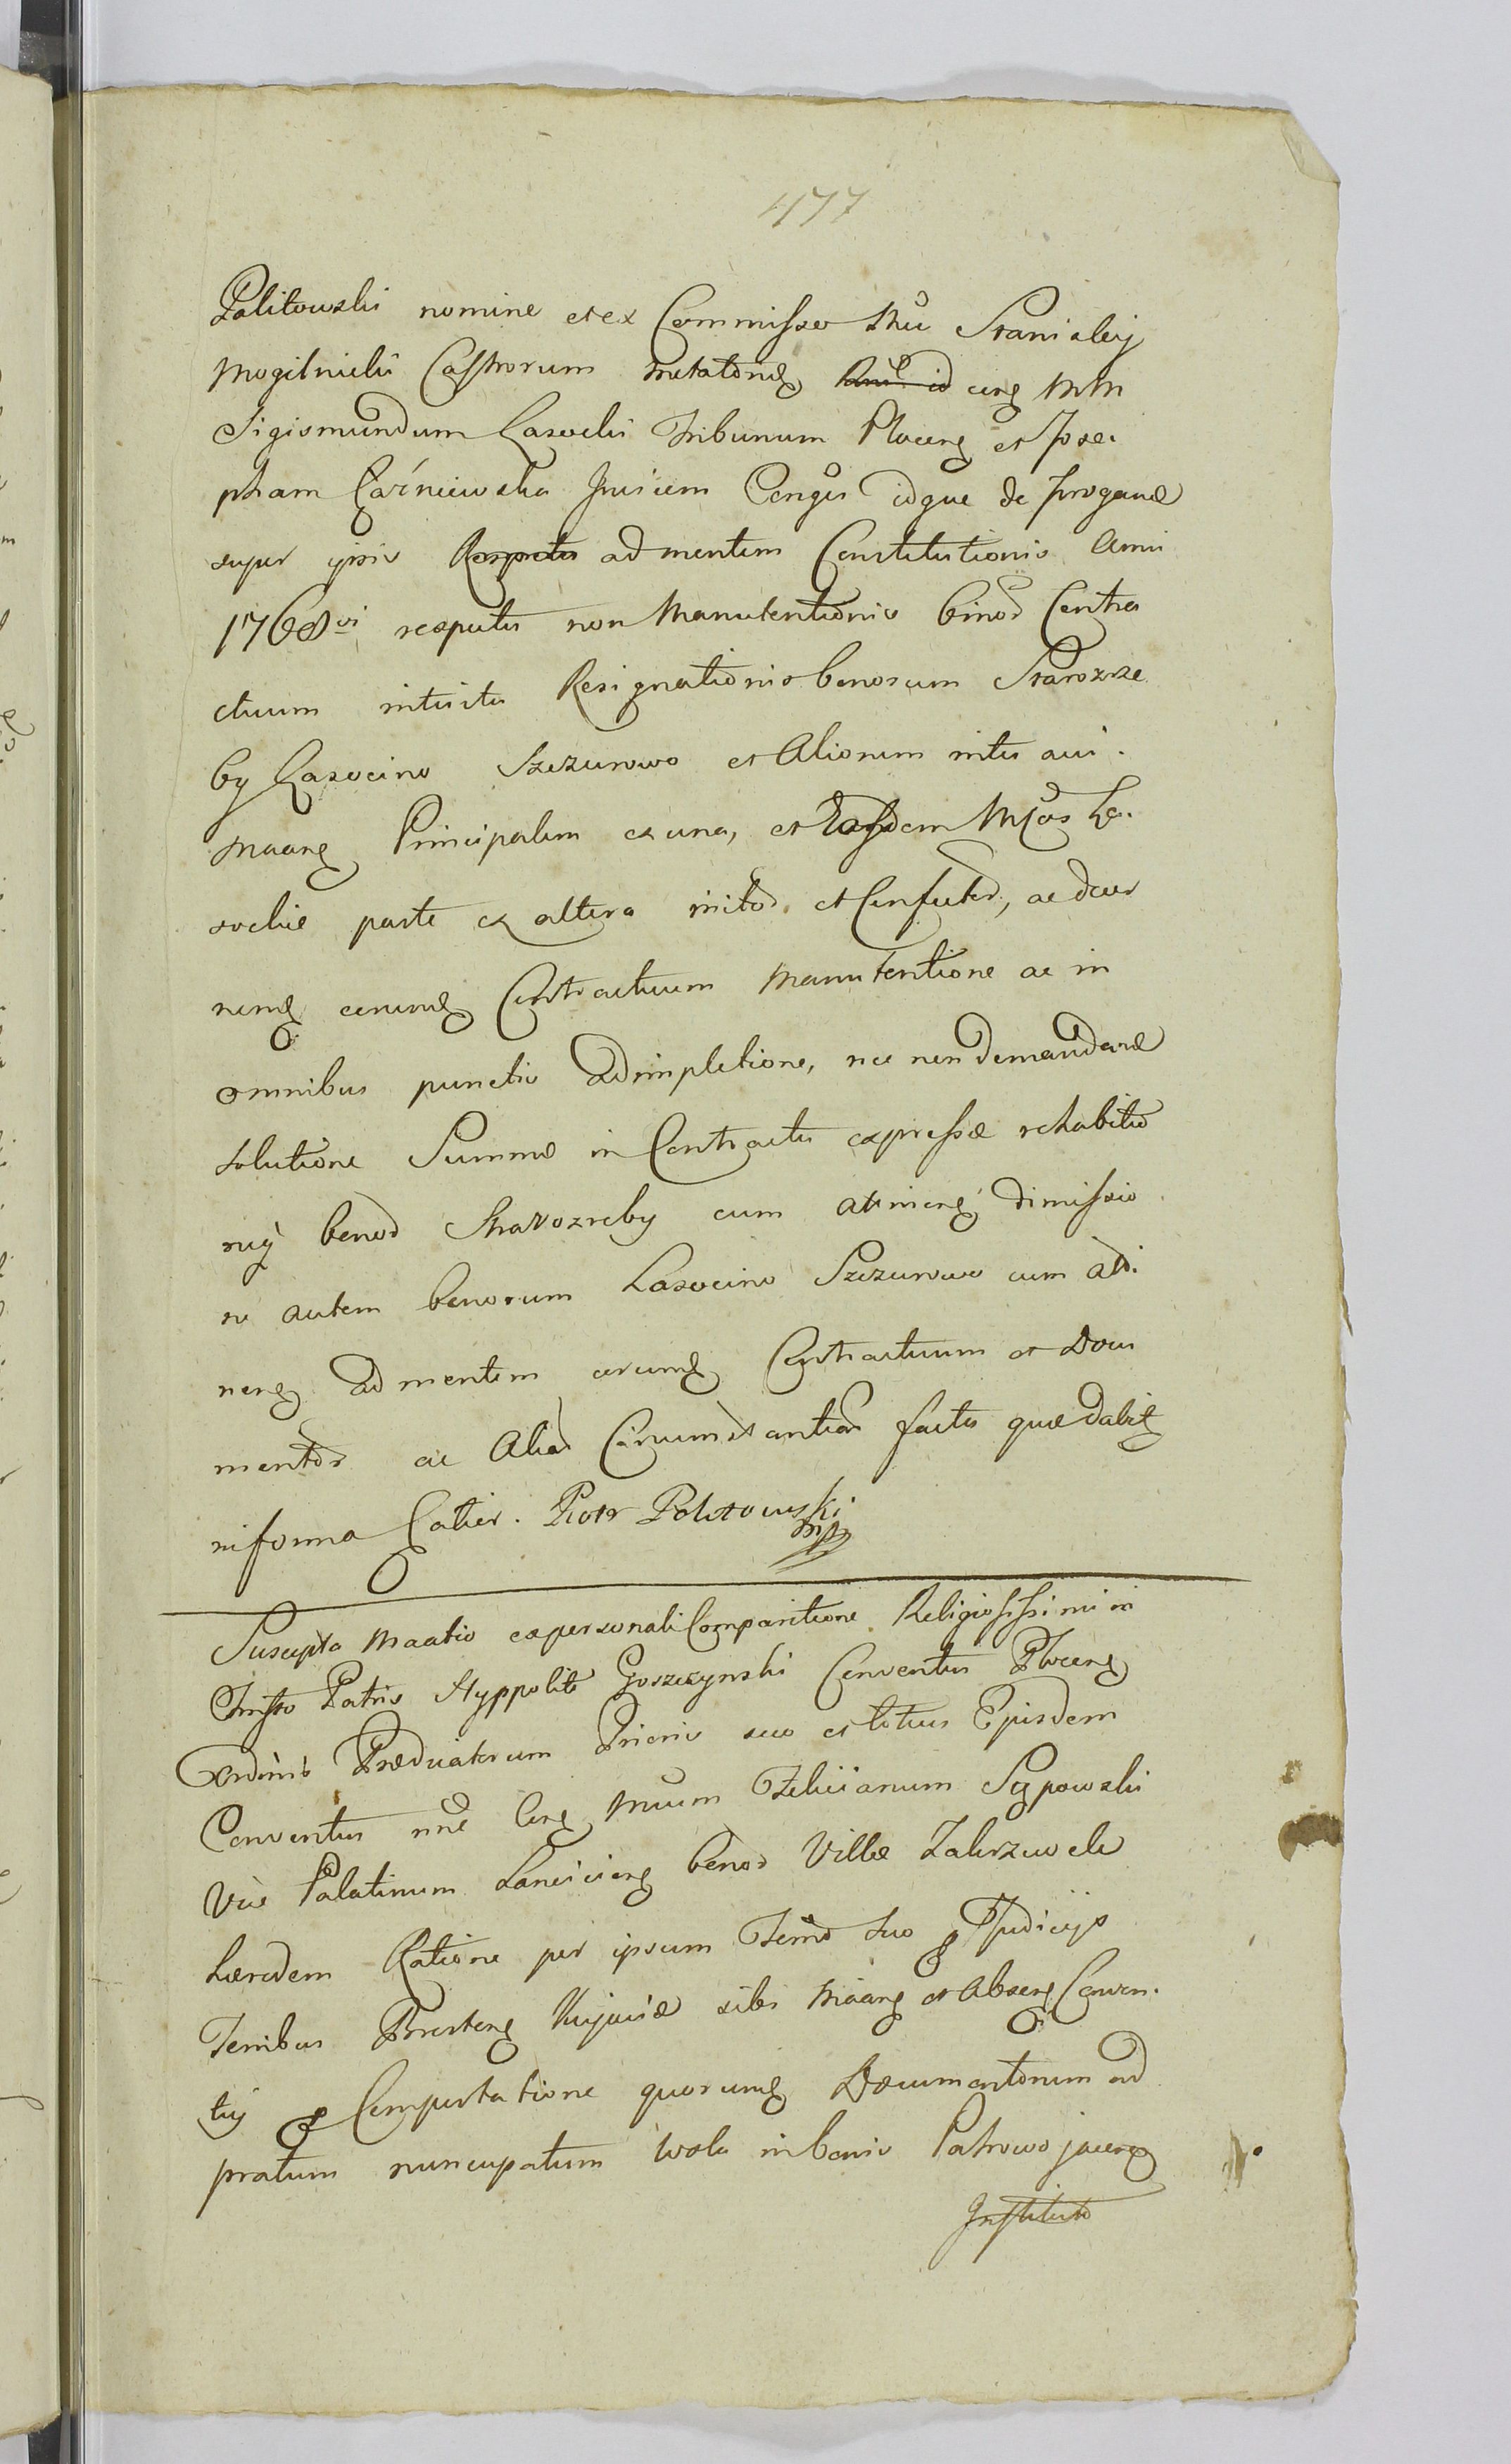 477
Politowski nomine et ex Commisso Mci Stanislaij
Mogilnicki Castrorum Metatoris cirg MM
Sigismundum Lasocki Tribunum Plocens et Jose.
pham Czarniewska Conges idque de
super ipsis Respectu ad mentem Constitutionis Anni
1768vi respectu non Manutentionis binor Contra
ctuum intuitu Resignationis bonorum Starozre
by Lasocino Szczurowo et Aliorum inter avi.
Maang Principalem ex una, et Eosdem Mcos La.
sockie parte ex altera initor et Confector, ac
eorumq Contractuum Manutentione ac in
omnibus punctis adimpletione, nec non demandare
solutione Summæ in Contractu expressæ rehabitio
nis bonor Starozreby cum attineng dimissio
ne autem bonorum Lasocino Szczurowo cum atti.
neng ad mentem eorumq Contractuum et Docu
mentor ac Aliar Circumstantiar factu quæ dabit
informa Latier. Piotr Politowski
mp
Suscepta Maatio ex personali Comparitione Religiosissimi in
Christo Patris Hyppoliti Goszczynski Conventus Plocens
Ordinis Prædicatorum Prioris suo et totius Ejusdem
Conventus nne Cirg Mcum Felicianum Sypowski
Vice Palatinum Lanciciens bonor Villæ Zakrzewek
hæredem Ratione per ipsum Termo suo Judicijs
Terribus Brestens Kujaviæ sibi Maang et Abseng Conven.
tuj Comportatione quorumq Documentorum ad
pratum nuncupatum Wola in bonis Patrowo jaceng
Instituto